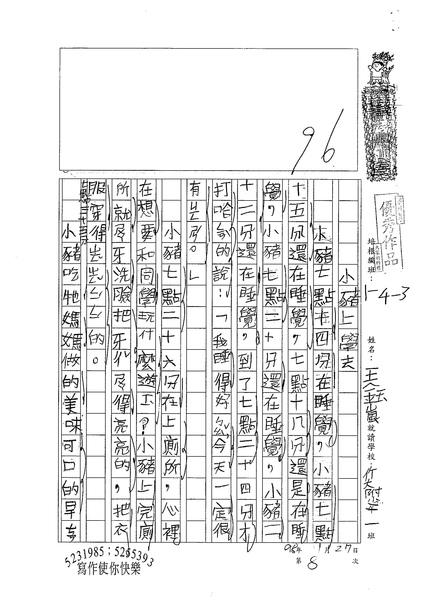 優秀作品
96
培根編班：1-4-3
姓名：
就讀學校
一班
98年1月27日
第8次
小豬上學去
小豬七點十四分在睡覺，小豬七點
十五分還在睡覺，七點十八分還是在睡
覺，小豬七點二十分還在睡覺，小豬二
十二分還在睡覺，到了七點二十四分才
打哈欠的說：「我睡得好飽今天一定很
有
小豬七點二十六分在上廁所，心裡
在想要和同學玩什麼遊戲？小豬上完廁
所就刷牙洗臉把牙
得亮亮的，把衣
服穿得
的。
小豬吃牠媽媽做的美味可口的早
5231985；5265393
寫作使你快樂